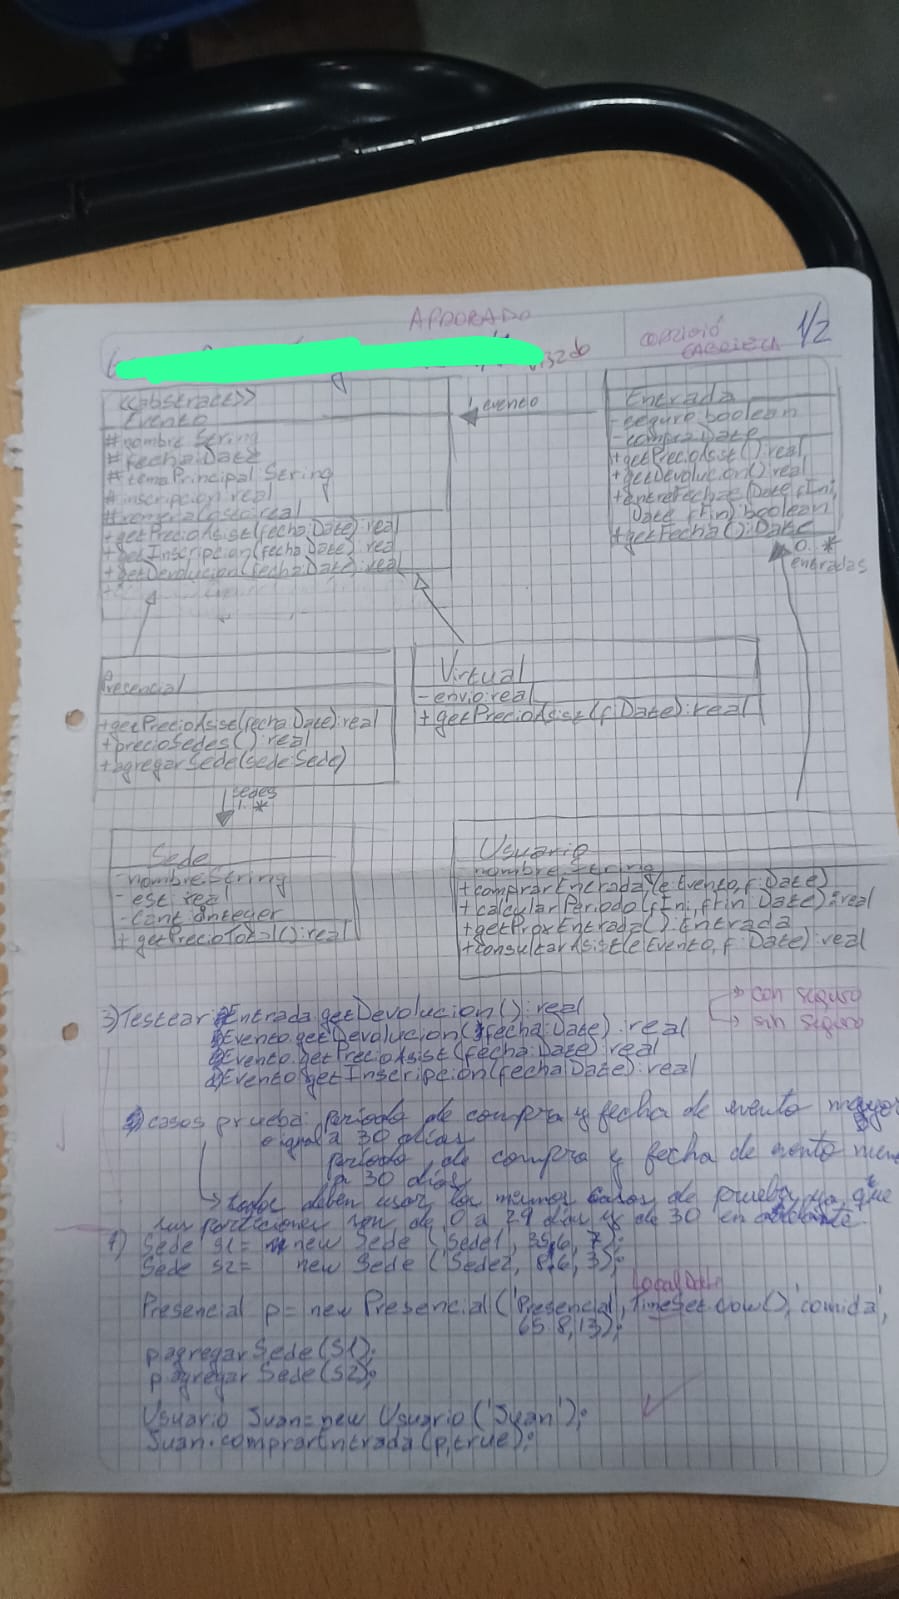 APROBADO
CORRIGIÓ
GABRIELA
1/2
<<abstract>>
Evento
#nombre String
#fecha:Date
#temaPrincipal String
#inscripcion real
#remeraCosto:real
+getPrecioAsist(fecha:Date):real
+getInscripcion(fecha:Date):real
+getDevolucion(fecha:Date):real
1 evento
Entrada
-seguro boolean
-compra:Date
+getPrecioAsist():real
+getDevolucion():real
+entreFechas(Date fIni,
Date fFin):boolean
+getFecha():Date
0..*
entradas
Presencial
+getPrecioAsist(fecha:Date):real
+precioSedes():real
+agregarSede(sede:Sede)
Virtual
-envio:real
+getPrecioAsist(f:Date):real
sedes
1..*
Sede
-nombre:String
-est:real
-cant:Integer
+getPrecioTotal():real
Usuario
-nombre:String
+comprarEntrada(e:Evento,f:Date)
+calcularPeriodo(fIni,fFin:Date):real
+getProxEntrada():Entrada
+consultarAsist(e:Evento,f:Date):real
3)Testear Entrada.getDevolucion():real
Evento.getDevolucion(fecha:Date):real
Evento.getPrecioAsist(fecha:Date):real
Evento.getInscripcion(fecha:Date):real
con seguro
sin seguro
casos prueba: período de compra y fecha de evento mayor
o igual a 30 días
período de compra y fecha de evento
a 30 días
todos deben usar los mismos casos de prueba, ya que
sus particiones son de 0 a 29 días y de 30 en adelante
Sede s1= new Sede ('Sede1', 35,6, 7);
Sede s2= new Sede ('Sede2, 8,6, 3);
LocalDate
Presencial p= new Presencial('Presencial', .now(),'comida',
65.8,13);
p.agregarSede(S1);
p.agregarSede(S2);
Usuario Juan=new Usuario('Juan');
Juan.comprarEntrada(p,true);